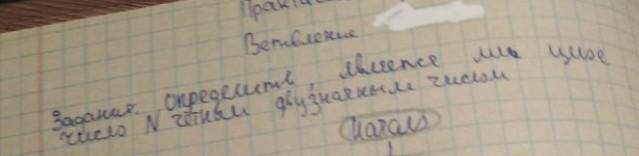 Ветвление
Задание. Определить, является ли целое
число N чётным двузначным числом
Начало